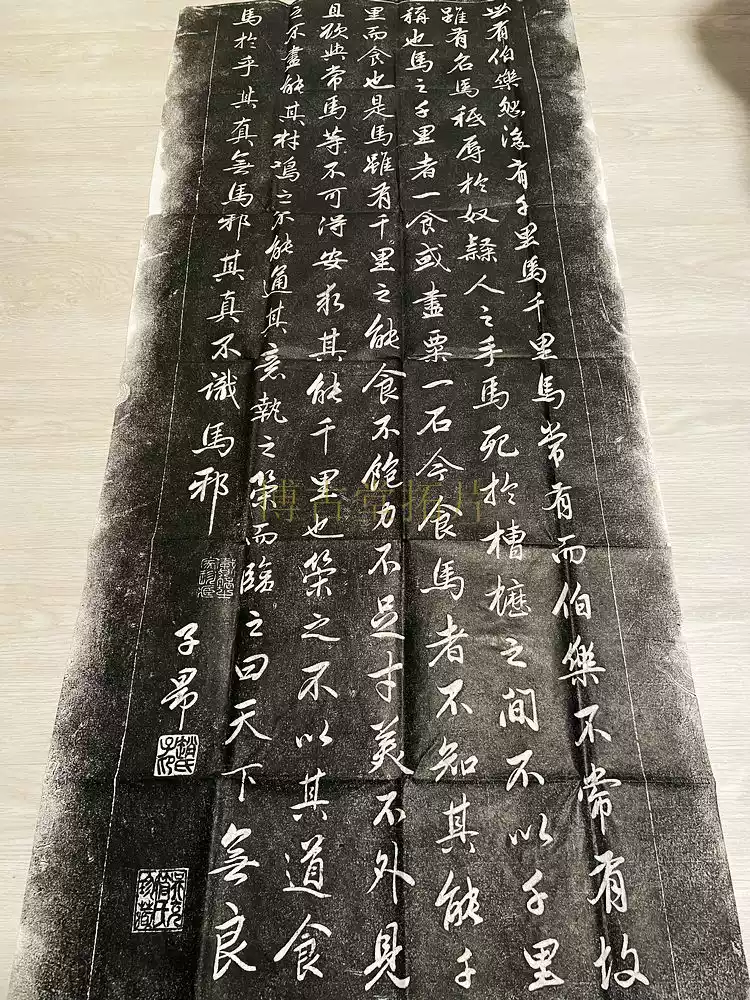 世有伯樂然後有千里馬千里馬常有而伯樂不常有故
雖有名馬秖辱於奴隸人之手馬死於槽櫪之間不以千里
稱也馬之千里者一食或盡粟一石今食馬者不知其能千
里而食也是馬雖有千里之能食不飽力不足才美不外見
且欲與常馬等不可得安求其能千里也策之不以其道食
之不盡能其材鳴之不能通其意執之策而臨之曰天下無良
馬於乎其真無馬邪其真不識馬邪
子昂
博古堂拓片